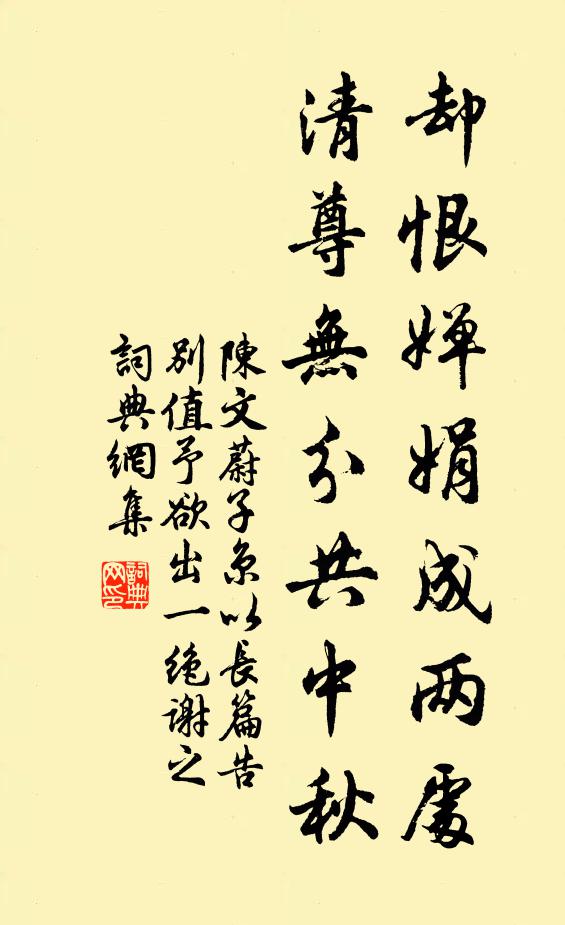 却恨婵娟成两處
清尊無分共中秋
陳文蔚子京以長篇告
别值予欲出一绝謝之
詞典網集
詞典
网印